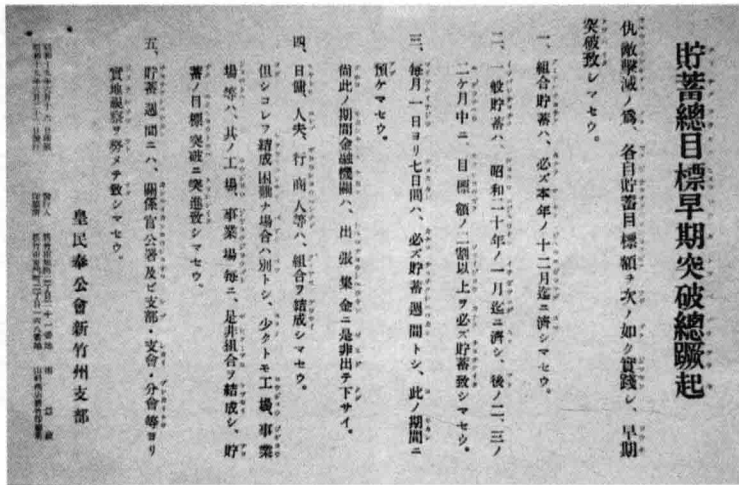 貯蓄總目標早期突破總蹶起
仇敵擊滅ノ爲、各自貯蓄目標額ヲ次ノ如ク實踐シ、早期
突破致シマセウ。
一、組合貯蓄ハ、必ズ本年ノ十二月迄ニ濟シマセウ。
二、一般貯蓄ハ、昭和二十年ノ一月迄ニ濟シ、後ノ二、三ノ
二ケ月中ニ、目標額ノ二割以上ヲ必ズ貯蓄致シマセウ。
三、每月一日ヨリ七日間ハ、必ズ貯蓄週間トシ、此ノ期間ニ
預ケマセウ。
尙此ノ期間金融機關ハ、出張集金ニ是非出テ下サイ。
四、日傭、人夫、行商人等ハ、組合ヲ結成シマセウ。
但シコレヲ結成困難ナ場合ハ別トシ、少クトモ工場、事業
場等ハ、其ノ工場、事業場每ニ、是非組合ヲ結成シ、貯
蓄ノ目標突破ニ突進致シマセウ。
五、貯蓄週間ニハ、關係官公署及ビ支部・支會・分會等ヨリ
實地視察ヲ努メテ致シマセウ。
皇民奉公會新竹州支部
發行人
印刷所
昭和十九年六月十六日印刷
昭和十九年六月二十日發行